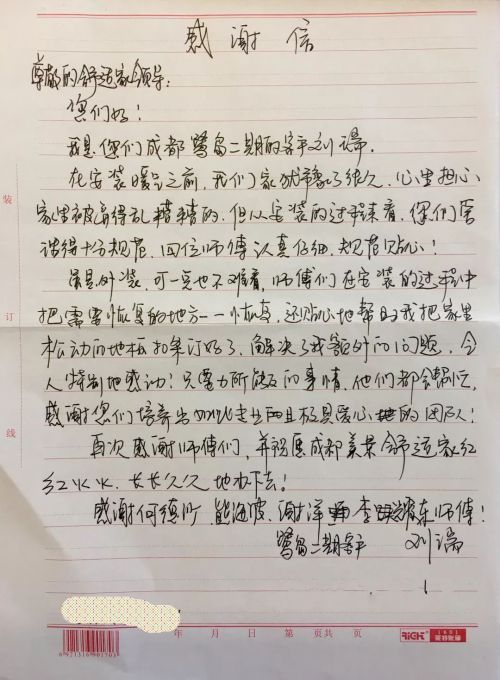 感谢信
尊敬的舒适家领导：
您们好！
我是你们成都鹭岛二期的客户刘瑞。
在安装暖气之前，我们家犹豫了很久，心里担心
家里被弄得乱糟糟的，但从安装的过程来看，你们安
装得十分规范，四位师傅认真仔细，规范贴心！
虽是外装，可一点也不难看，师傅们在安装的过程中
把需要恢复的地方一一恢复，还贴心地帮助我把家里
松动的地板扣条订好了，解决了我额外的问题，令
人特别地感动！只要力所能及的事情，他们都会帮忙，
感谢您们培养出如此专业而且极具爱心地的团队！
再次感谢师傅们，并祝愿成都美景舒适家红
红火火、长长久久地办下去！
感谢何德兴、熊海波、谢洋、李耀东师傅！
鹭岛二期客户 刘瑞
装
订
线
年 月 日 第 页共 页
RiCH
6921316901703